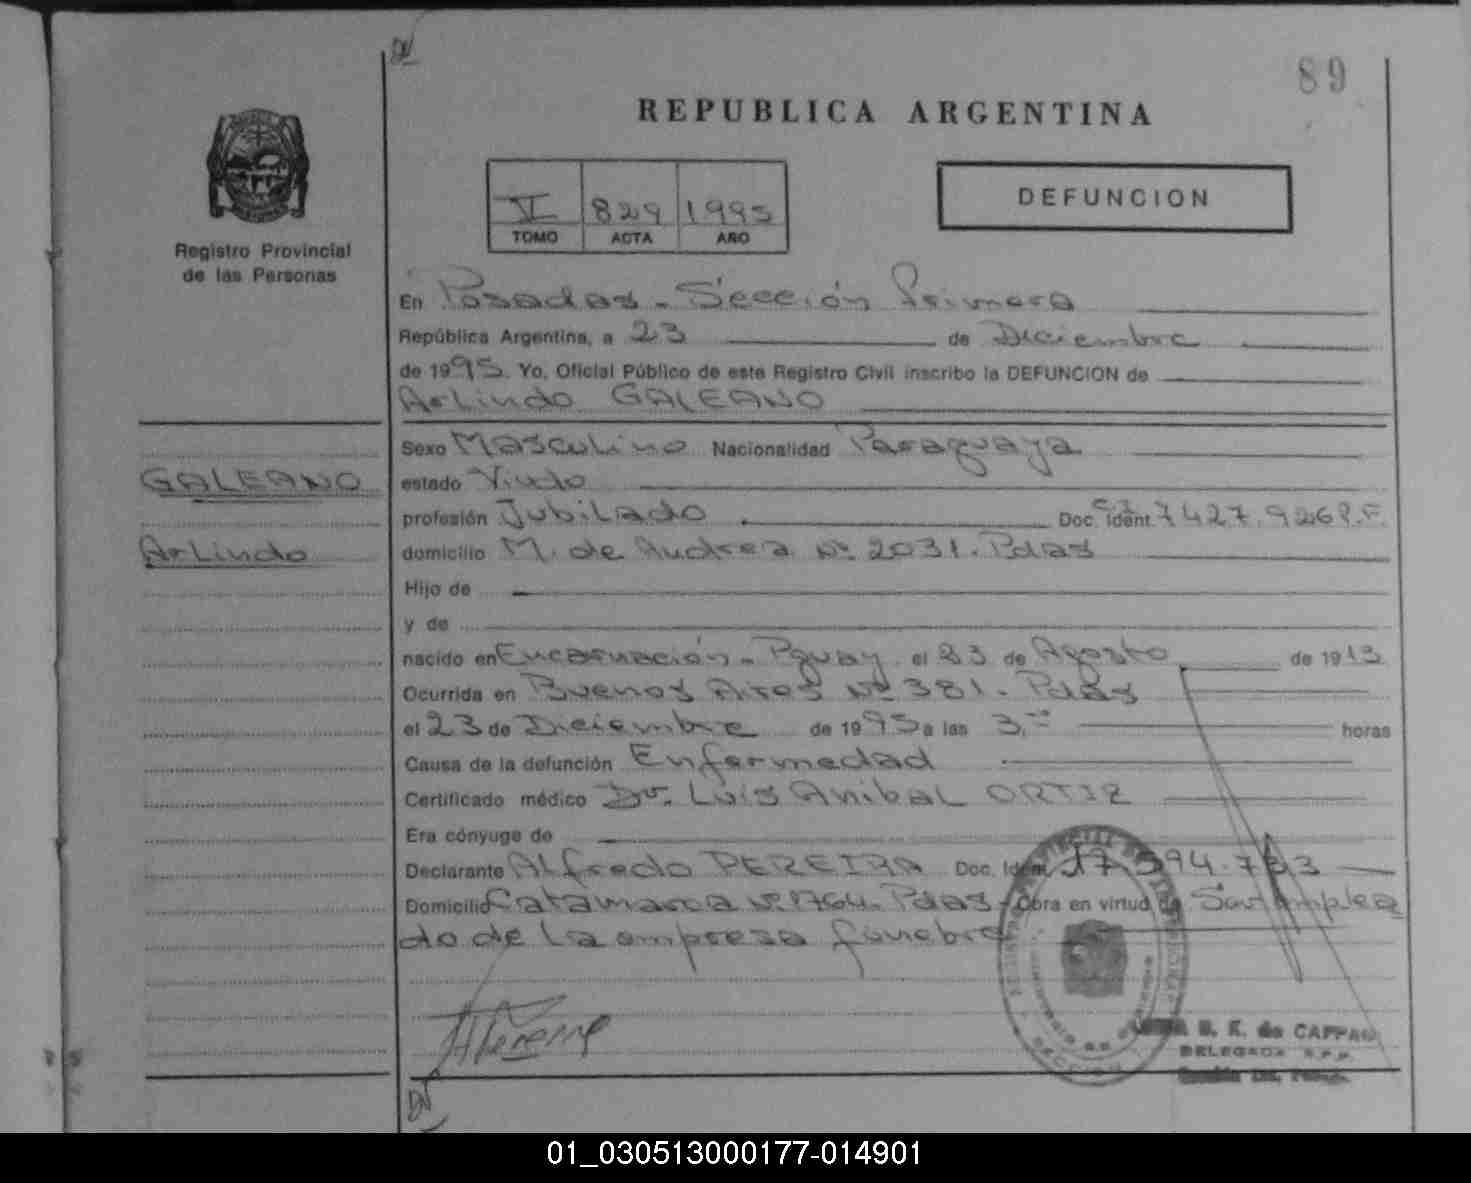 89
REPUBLICA ARGENTINA
DEFUNCION
VI 829 1995
TOMO ACTA AÑO
Registro Provincial
de las Personas
En Posadas - Sección Primera
República Argentina, a 23 de Diciembre
de 1995. Yo, Oficial Público de este Registro Civil inscribo la DEFUNCION de
Arlindo GALEANO
GALEANO
Arlindo
Sexo Masculino Nacionalidad Paraguaya
estado Viudo
profesión Jubilado Doc. Ident. C.I. 7427.926 P.F.
domicilio M. de Andrea Nº 2031. Pdas
Hijo de
y de
nacido en Encarnación - Pguay. el 23 de Agosto de 1913
Ocurrida en Buenos Aires Nº 381. Pdas
el 23 de Diciembre de 1995 a las 3,- horas
Causa de la defunción Enfermedad
Certificado médico Dr. Luis Anibal ORTIZ
Era cónyuge de
Declarante Alfredo PEREIRA Doc. Ident. 17.594.733
Domicilio Catamarca Nº 1764. Pdas - Obra en virtud de Ser emplea
do de la empresa fúnebre
B. K. de CAPPA
DELEGADA R.P.P.
01_030513000177-014901